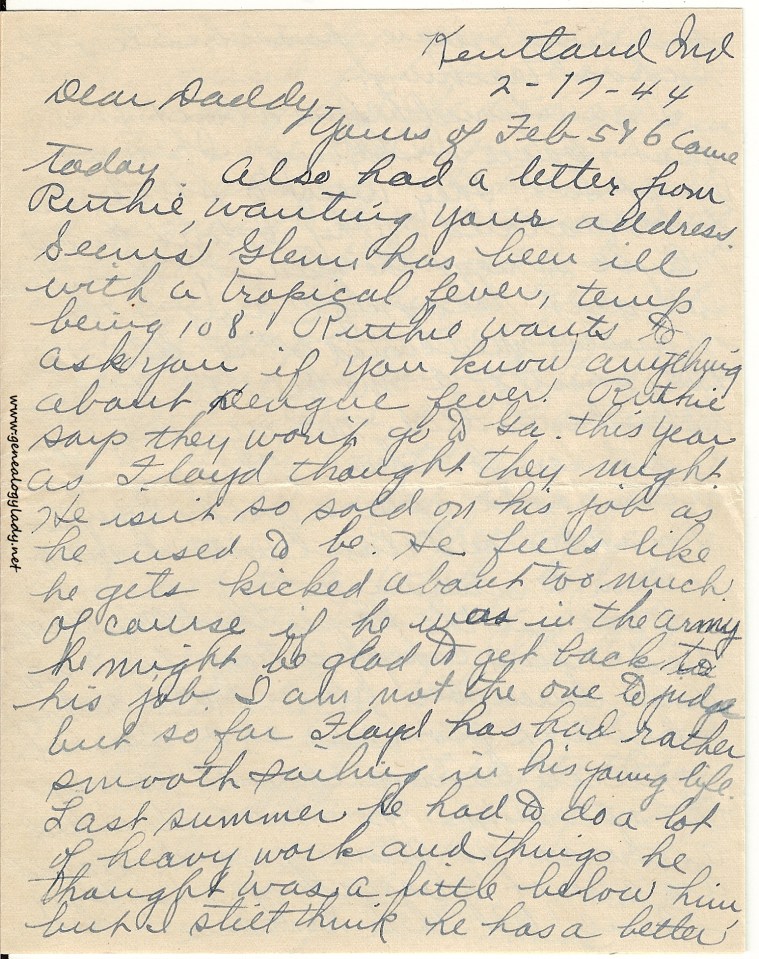 Kentland Ind
2-17-44
Dear Daddy,
Yours of Feb 5 & 6 came
today. Also had a letter from
Ruthie, wanting your address.
Seems Glenn has been ill
with a tropical fever, temp
being 108. Ruthie wants to
ask you if you know anything
about Dengue fever. Ruthie
says they won't go to Ga. this year
as Floyd thought they might
He isn't so sold on his job as
he used to be. He feels like
he gets kicked about too much.
Of course if he was in the army
he might be glad to get back to
his job. I am not the one to judge
but so far Floyd has had rather
smooth sailing in his young life.
Last summer he had to do a lot
of heavy work and things he
thought was a little below him,
but I still think he has a better
www.genealogylady.net